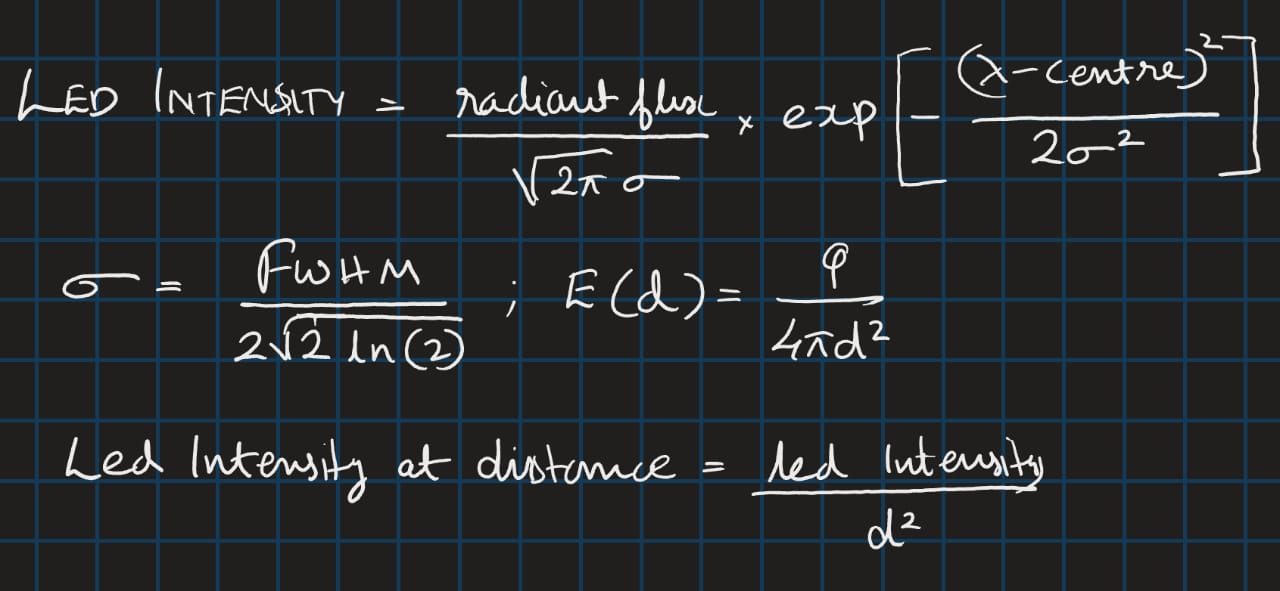 LED INTENSITY = radiant flux / √2π σ × exp [ - (x-centre)² / 2σ² ]
σ = FWHM / 2√2 ln(2) ; E(d) = φ / 4πd²
Led Intensity at distance = led Intensity / d²